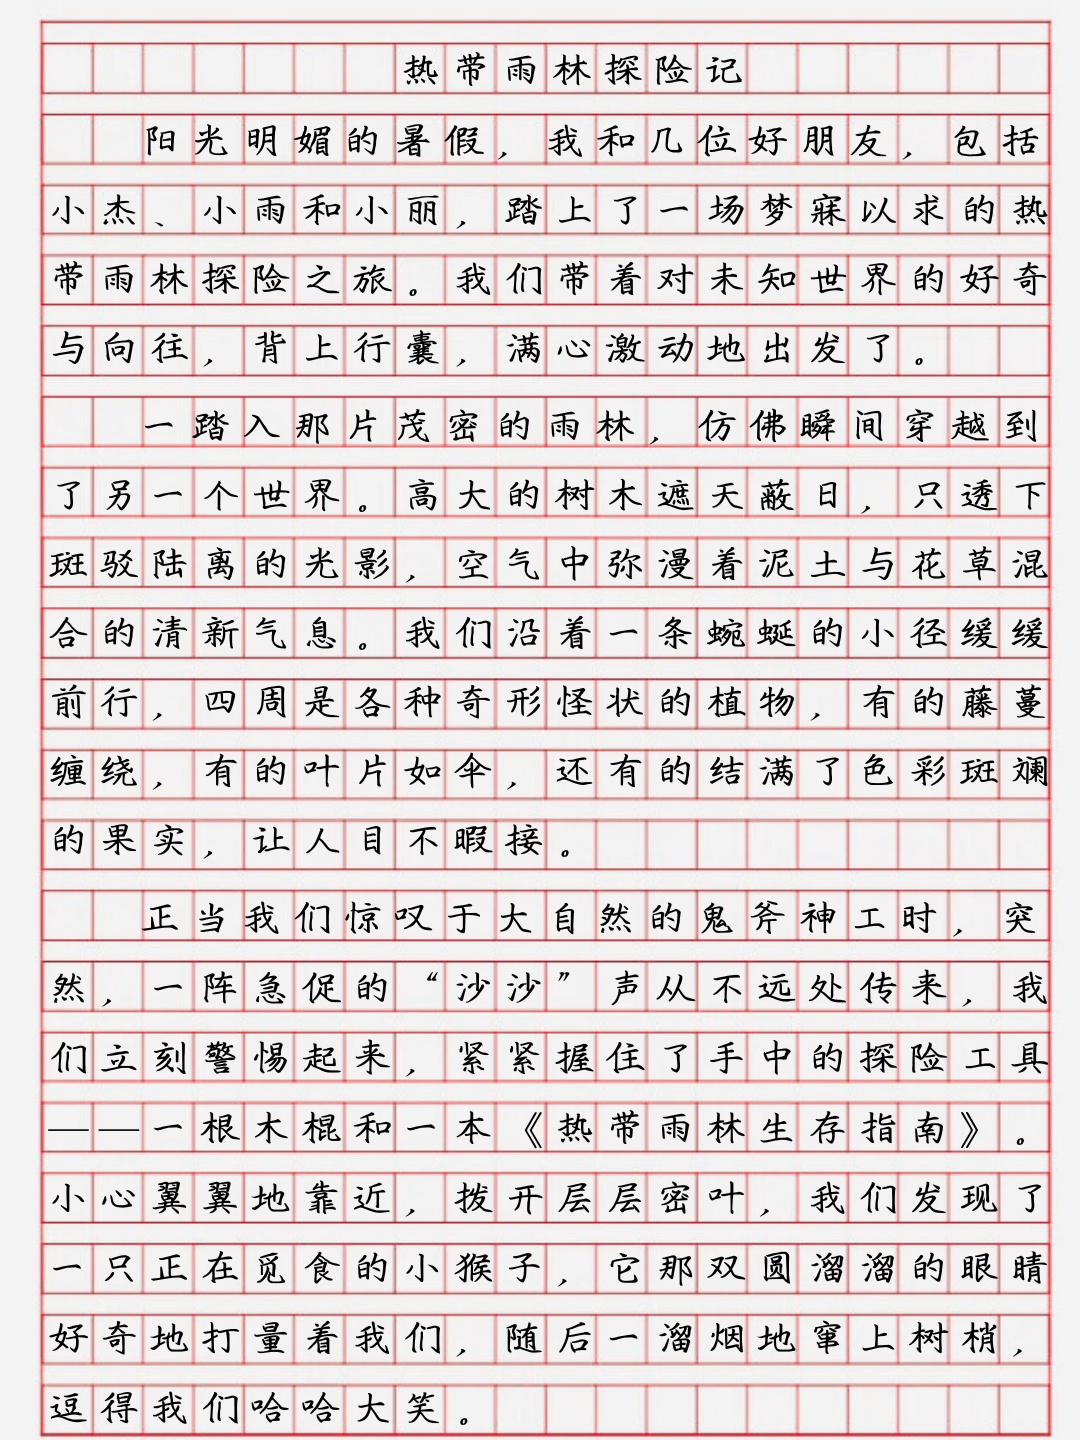 热带雨林探险记
阳光明媚的暑假，我和几位好朋友，包括
小杰、小雨和小丽，踏上了一场梦寐以求的热
带雨林探险之旅。我们带着对未知世界的好奇
与向往，背上行囊，满心激动地出发了。
一踏入那片茂密的雨林，仿佛瞬间穿越到
了另一个世界。高大的树木遮天蔽日，只透下
斑驳陆离的光影，空气中弥漫着泥土与花草混
合的清新气息。我们沿着一条蜿蜒的小径缓缓
前行，四周是各种奇形怪状的植物，有的藤蔓
缠绕，有的叶片如伞，还有的结满了色彩斑斓
的果实，让人目不暇接。
正当我们惊叹于大自然的鬼斧神工时，突
然，一阵急促的“沙沙”声从不远处传来，我
们立刻警惕起来，紧紧握住了手中的探险工具
——一根木棍和一本《热带雨林生存指南》。
小心翼翼地靠近，拨开层层密叶，我们发现了
一只正在觅食的小猴子，它那双圆溜溜的眼睛
好奇地打量着我们，随后一溜烟地窜上树梢，
逗得我们哈哈大笑。